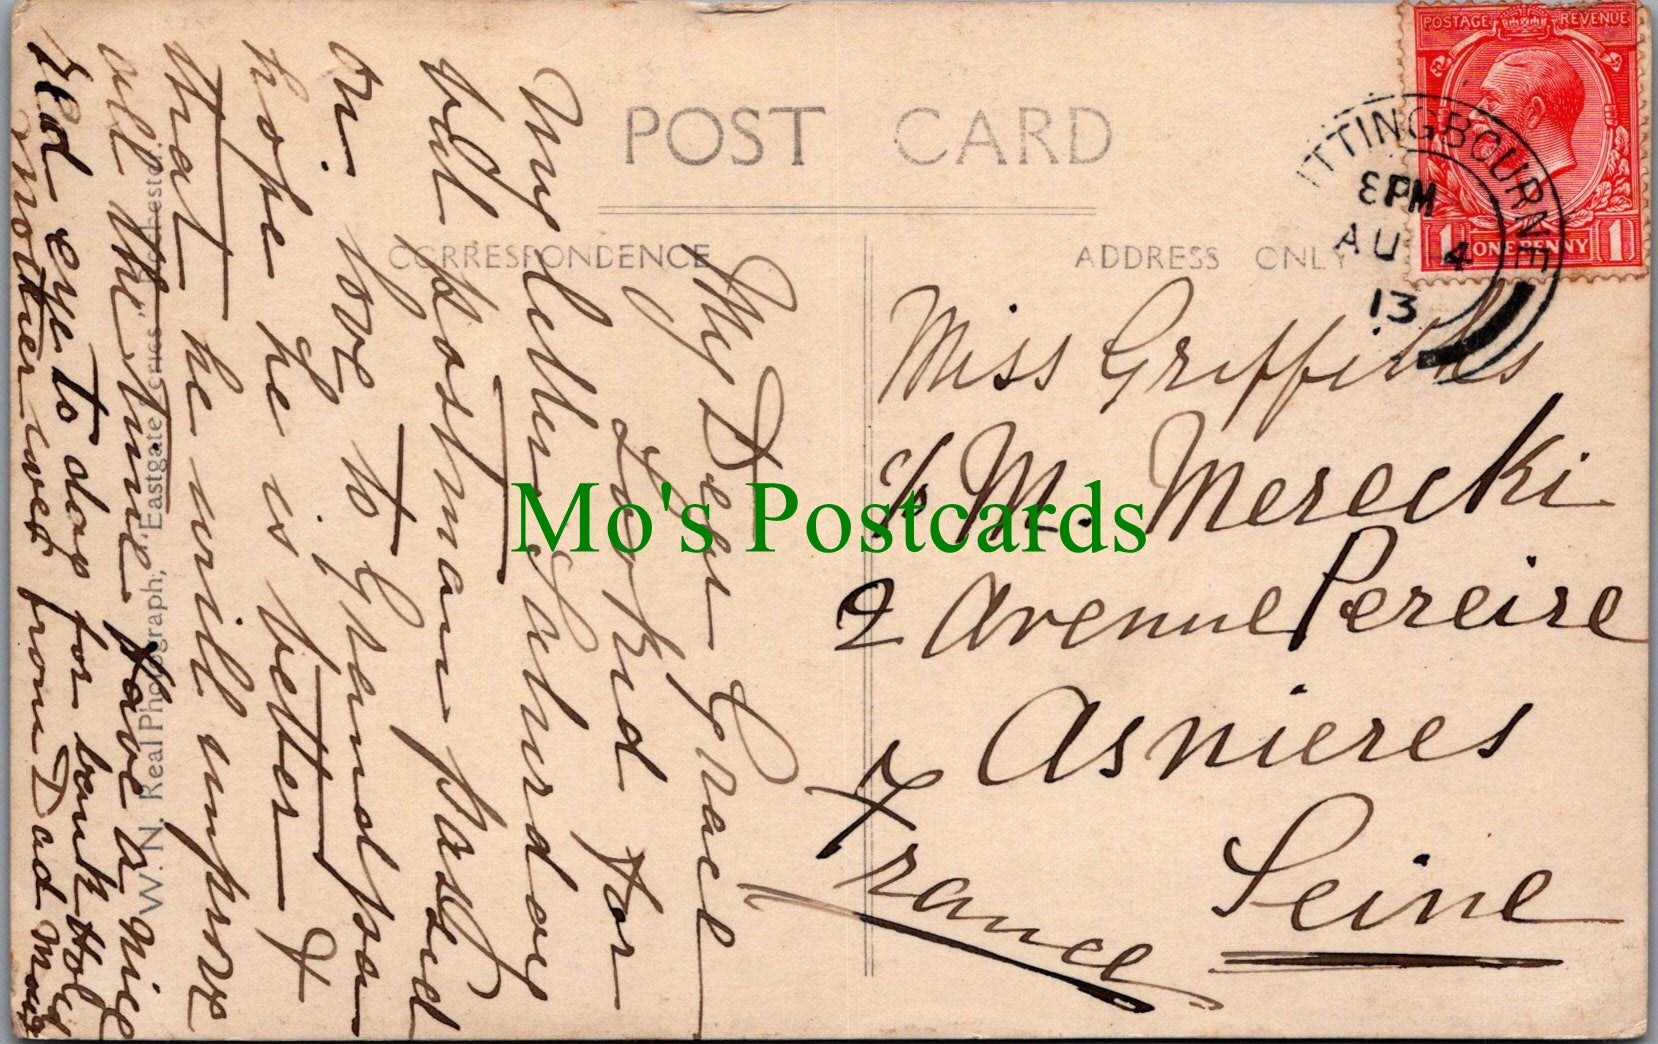 POSTAGE REVENUE
1 ONE PENNY 1
ITTINGBOURNE
8 PM
AU 4
13
POST CARD
CORRESPONDENCE
ADDRESS ONLY
Miss Griffiths
c/o M. Merecki
2 Avenue Pereire
Asnieres
Seine
France
My Dear Grace
Looked for
my letter Saturday
but postman passed
on. love to Grandpa
hope he is better &
that he will improve
all the time have a nice
red eye to day for bank Holi
Mother love from Dad
W. N. Real Photograph, "Eastgate Series" Rochester.
Mo's Postcards